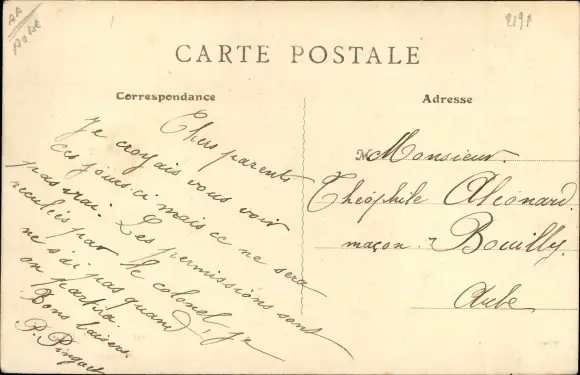 AA
Aube
219P
CARTE POSTALE
Correspondance
Adresse
Chers parents
Je croyais vous voir
ces jours-ci mais ce ne sera
pas vrai. Les permissions sont
reculées par le colonel, je
ne sai pas quand
on partira.
Bons baisers.
P. Pingaet
Monsieur
Théophile Aléonard
maçon à Bouilly.
Aube